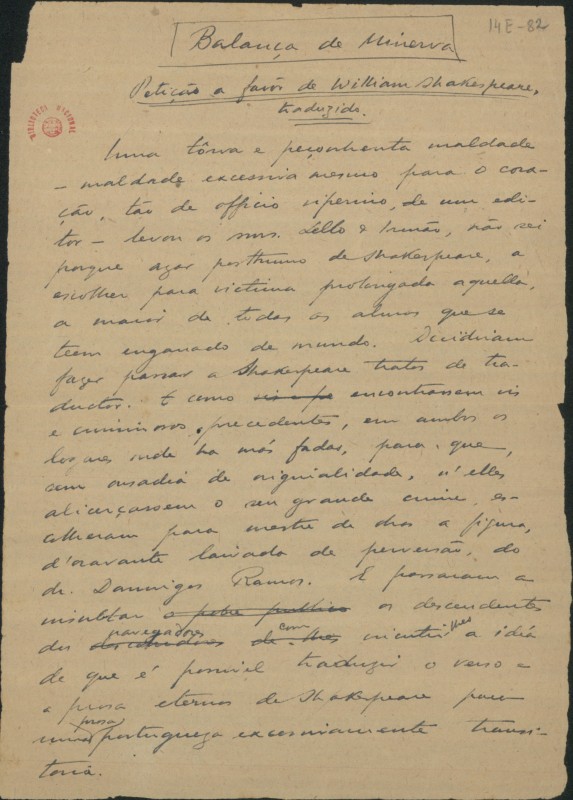 14E-82
Balança de Minerva
Petição a favôr de William Shakespeare,
traduzido.
BIBLIOTECA NACIONAL
Uma tôrva e peçonhenta maldade
— maldade excessiva mesmo para o cora-
ção, tão de officio viperino, de um edi-
tor — levou os snrs. Lello & Irmão, não sei
porque azar posthumo de Shakespeare, a
escolher para victima prolongada aquella,
a maior de todas as almas que se
teem enganado de mundo. Decidiram
fazer passar a Shakespeare tratos de tra-
ductor. E como encontrassem vis
e criminosos precedentes, em ambos os
logares onde ha más fadas, para que,
sem ousadia de originalidade, n'elles
alicerçassem o seu grande crime, es-
colheram para mestre de obras a figura,
d'oravante laivada de perversão, do
dr. Domingos Ramos. E passaram a
insultar o pobre publico os descendentes
dos navegadores com incutir-lhes a idéa
de que é possivel traduzir o verso e
a prosa eternos de Shakespeare para
uma prosa portugueza excessivamente transi-
toria.